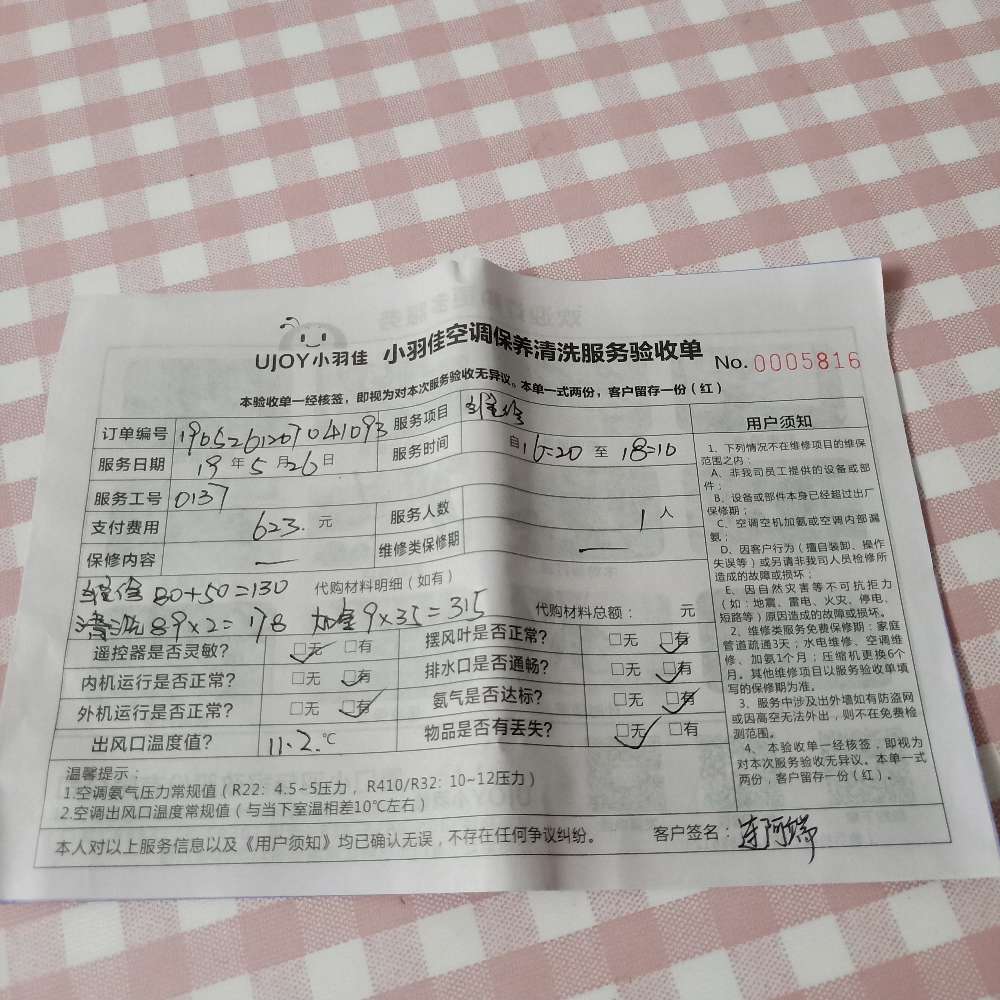 UJOY小羽佳 小羽佳空调保养清洗服务验收单 No.0005816
本验收单一经核签，即视为对本次服务验收无异议。本单一式两份，客户留存一份（红）
订单编号 1905261207041093 服务项目 维修
服务日期 19年5月26日 服务时间 自16:20至18:10
服务工号 0137
支付费用 623.元 服务人数 1人
保修内容 — 维修类保修期 —
维修 80+50=130 代购材料明细（如有）
清洗 89×2=178 加氨 9×35=315 代购材料总额： 元
遥控器是否灵敏? □无 □有 摆风叶是否正常? □无 □有
内机运行是否正常? □无 □有 排水口是否通畅? □无 □有
外机运行是否正常? □无 □有 氨气是否达标? □无 □有
出风口温度值? 11.2.℃ 物品是否有丢失? □无 □有
温馨提示：
1.空调氨气压力常规值（R22：4.5~5压力，R410/R32：10~12压力）
2.空调出风口温度常规值（与当下室温相差10℃左右）
本人对以上服务信息以及《用户须知》均已确认无误，不存在任何争议纠纷。 客户签名：连阿瑞
用户须知
1、下列情况不在维修项目的维保
范围之内：
A、非我司员工提供的设备或部
件；
B、设备或部件本身已经超过出厂
保修期；
C、空调空机加氨或空调内部漏
氨；
D、因客户行为（擅自装卸、操作
失误等）或另请非我司人员检修所
造成的故障或损坏；
E、因自然灾害等不可抗拒力
（如：地震、雷电、火灾、停电、
短路等）原因造成的故障或损坏。
2、维修类服务免费保修期：家庭
管道疏通3天；水电维修、空调维
修、加氨1个月；压缩机更换6个
月。其他维修项目以服务验收单填
写的保修期为准。
3、服务中涉及出外墙如有防盗网
或因高空无法外出，则不在免费检
测范围。
4、本验收单一经核签，即视为
对本次服务验收无异议。本单一式
两份，客户留存一份（红）。